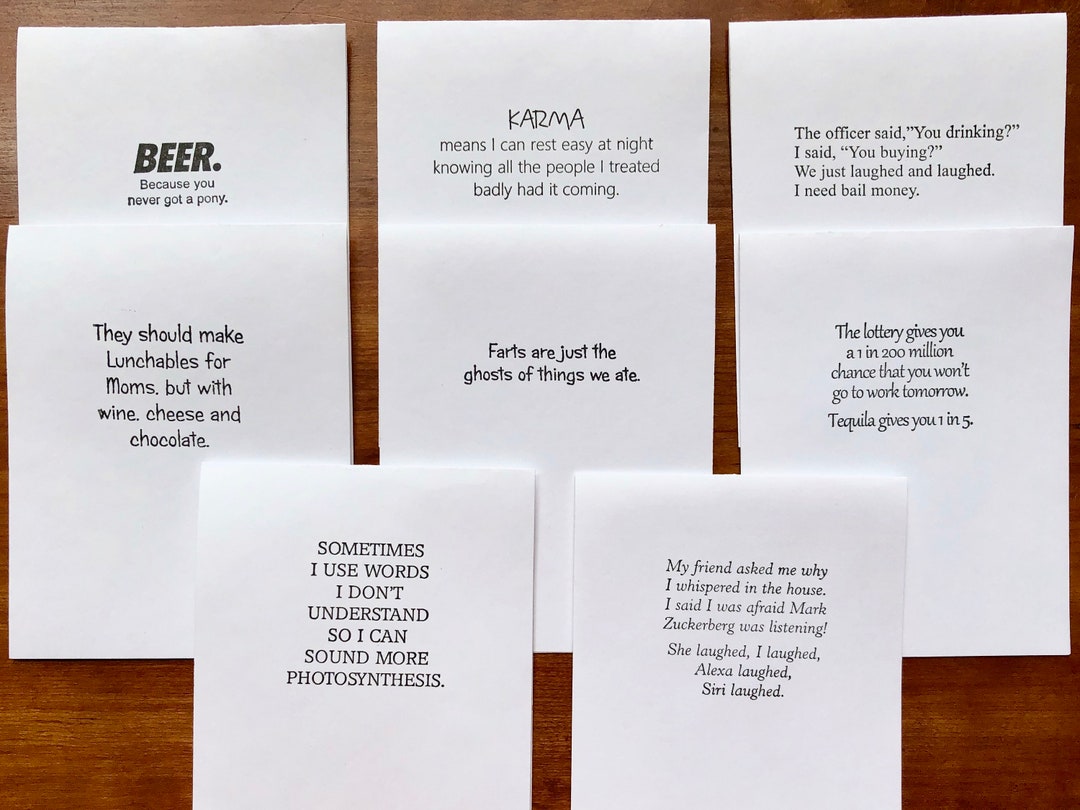 BEER.
Because you
never got a pony.
KARMA
means I can rest easy at night
knowing all the people I treated
badly had it coming.
The officer said,”You drinking?”
I said, “You buying?”
We just laughed and laughed.
I need bail money.
They should make
Lunchables for
Moms. but with
wine. cheese and
chocolate.
Farts are just the
ghosts of things we ate.
The lottery gives you
a 1 in 200 million
chance that you won’t
go to work tomorrow.
Tequila gives you 1 in 5.
SOMETIMES
I USE WORDS
I DON’T
UNDERSTAND
SO I CAN
SOUND MORE
PHOTOSYNTHESIS.
My friend asked me why
I whispered in the house.
I said I was afraid Mark
Zuckerberg was listening!
She laughed, I laughed,
Alexa laughed,
Siri laughed.